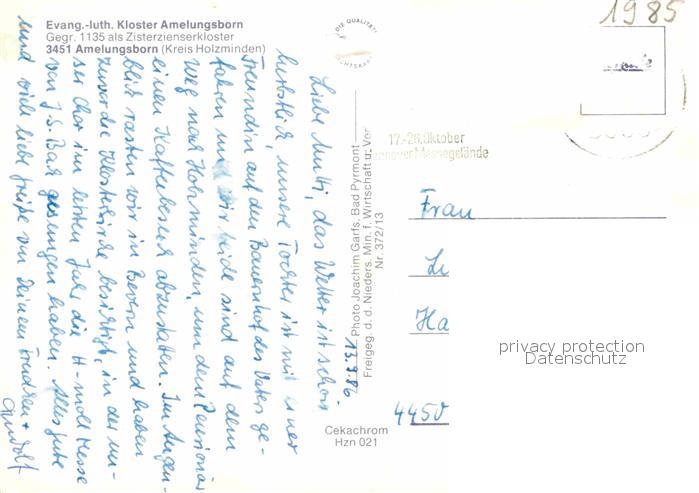 Evang.-luth. Kloster Amelungsborn
Gegr. 1135 als Zisterzienserkloster
3451 Amelungsborn (Kreis Holzminden)
DIE QUALITÄTS
1985
17.-26. Oktober
Hannover Messegelände
Liebe Mutti, das Wetter ist schön
herbstlich, unsere Tochter ist mit einer
Freundin auf den Bauernhof des Vaters ge-
fahren und wir beide sind auf dem
Weg nach Holzminden, um dem Pensionär
einen Kaffeebesuch abzustatten. Im Augen-
blick rasten wir in Bevern und haben
zuvor die Klosterkirche besichtigt, in der un-
ser Chor im letzten Jahr die H-moll Messe
von J.S. Bach gesungen haben. Alles Gute
und viele liebe Grüße von Deinen
13.9.86
Photo Joachim Garfs, Bad Pyrmont
Freigeg. d. d. Nieders. Min. f. Wirtschaft u. Ver
Nr. 372/13
Cekachrom
Hzn 021
Frau
Li
Ha
4450
privacy protection
Datenschutz